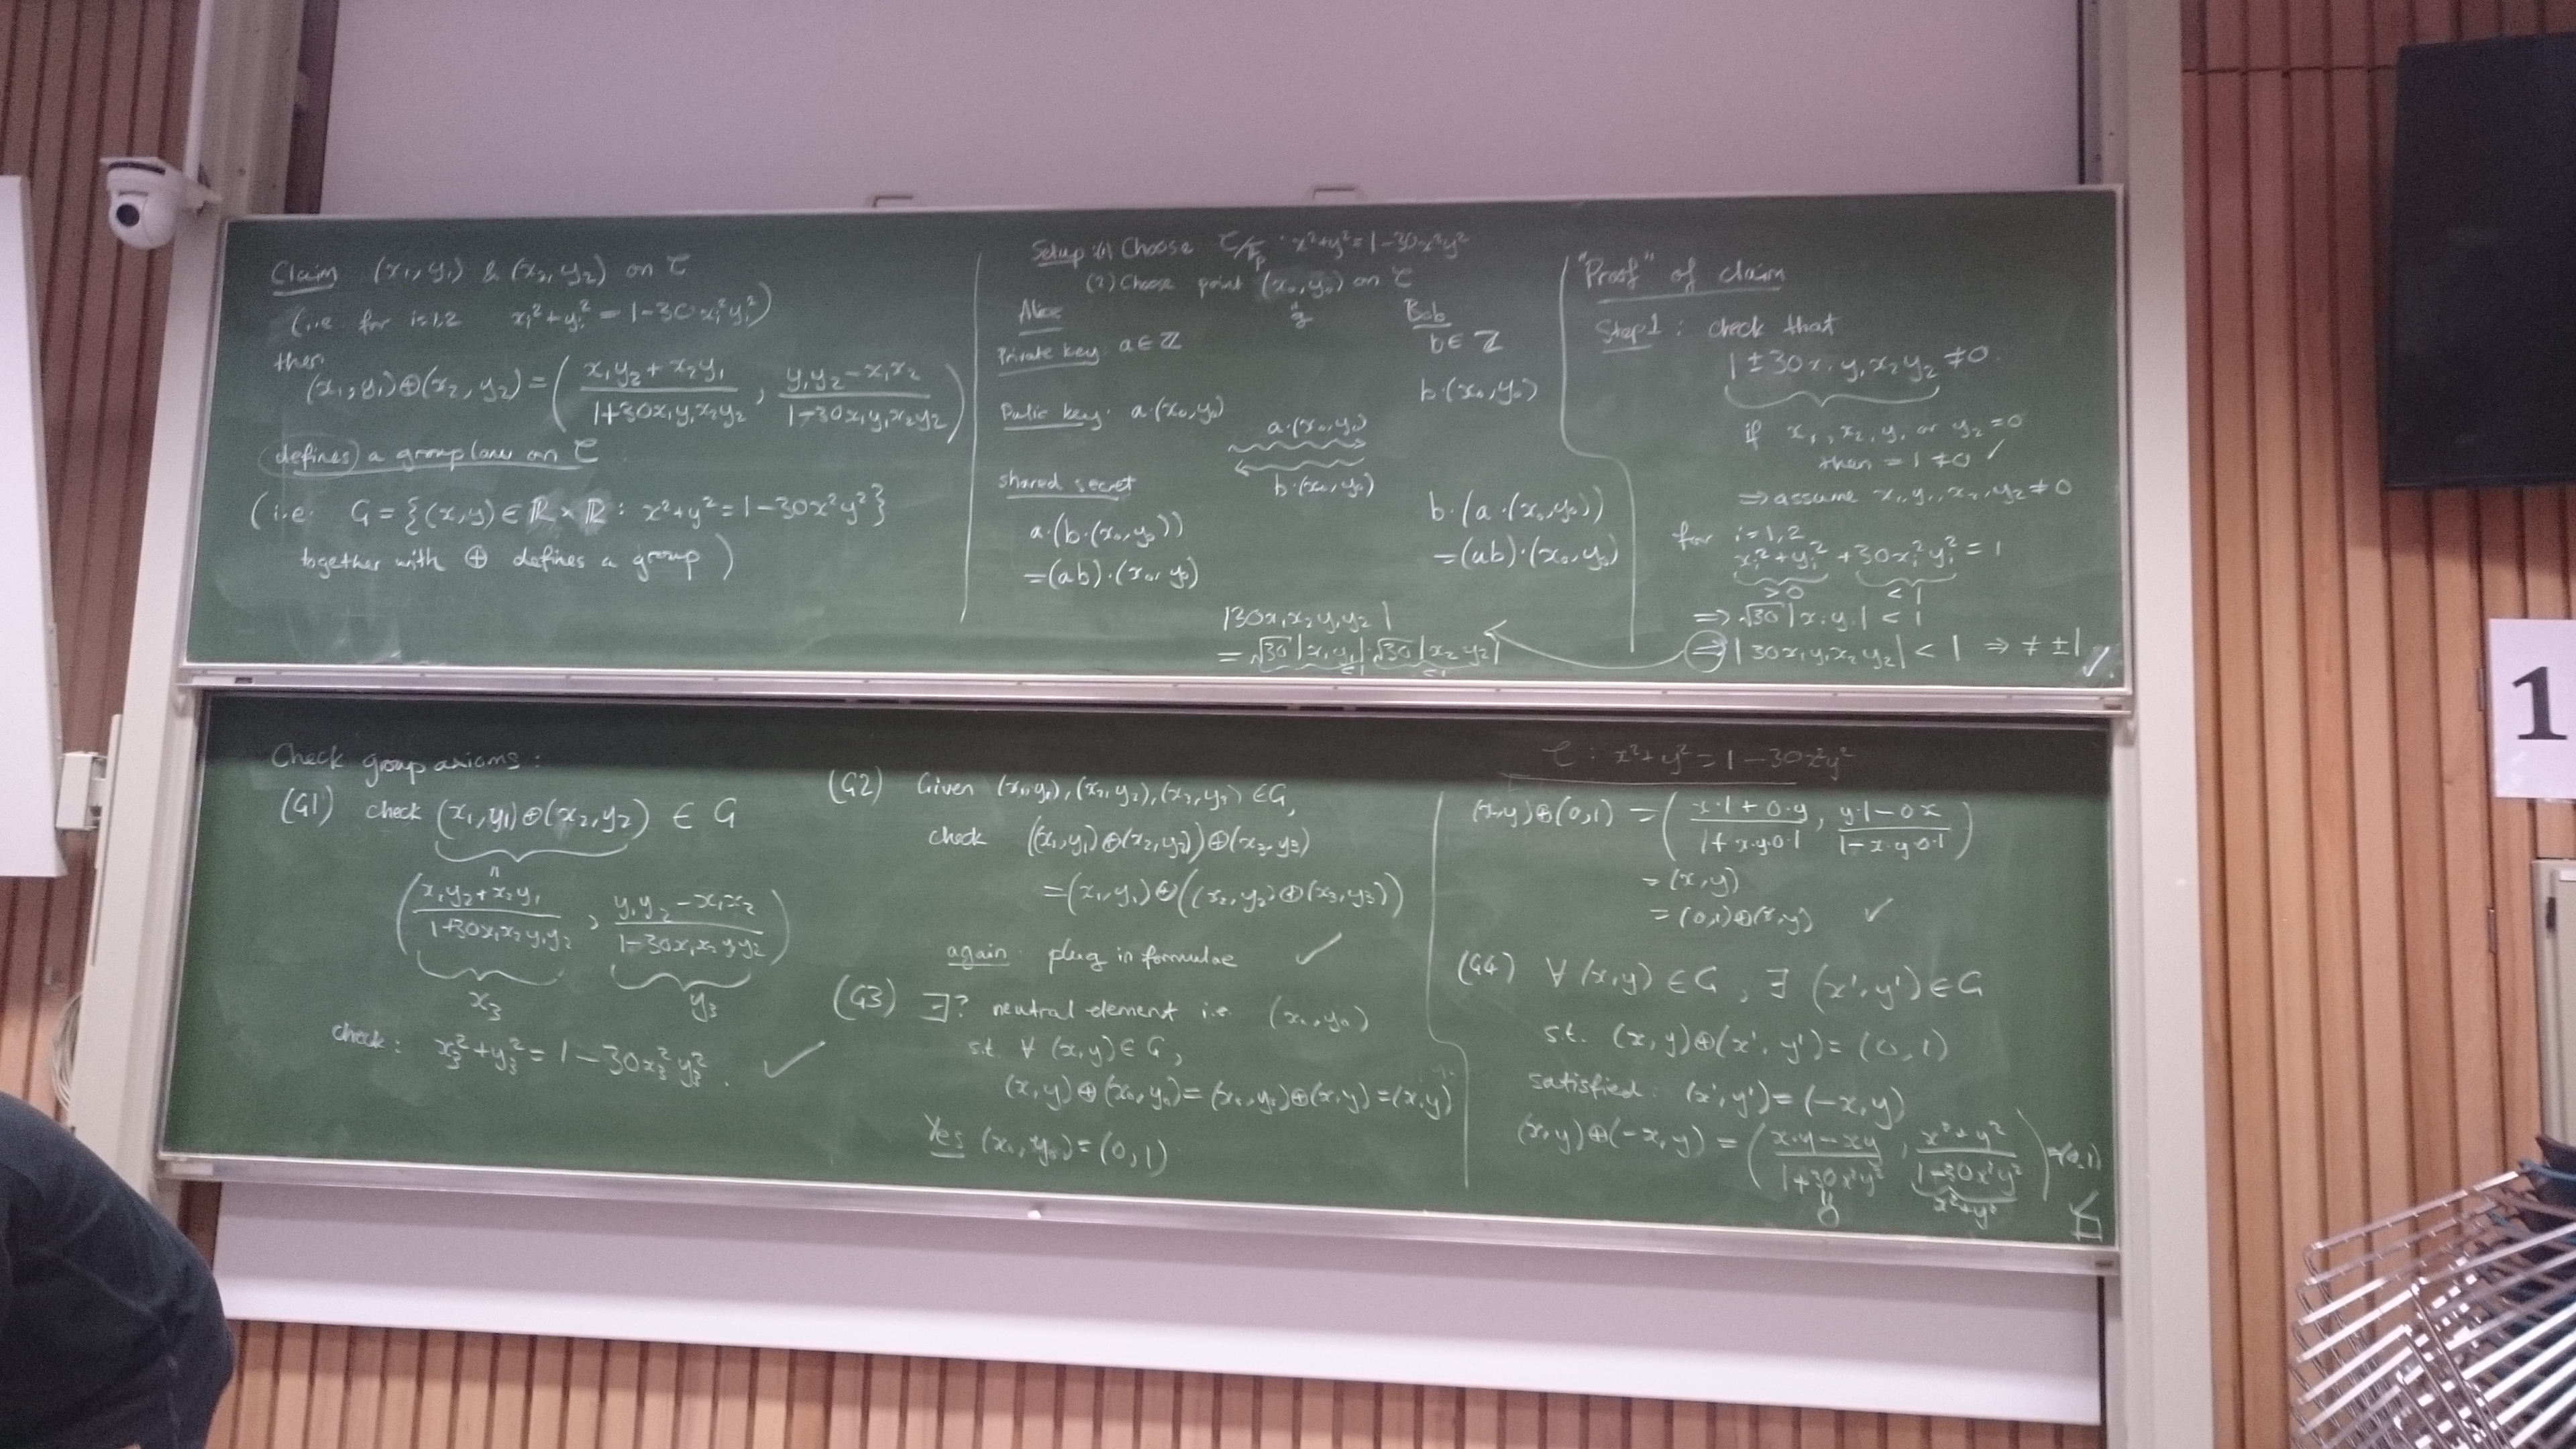 Claim (x₁, y₁) & (x₂, y₂) on C
(i.e. for i=1,2 xᵢ²+yᵢ² = 1-30xᵢ²yᵢ²)
then
(x₁,y₁)⊕(x₂,y₂) = ( (x₁y₂+x₂y₁)/(1+30x₁y₁x₂y₂) , (y₁y₂-x₁x₂)/(1-30x₁y₁x₂y₂) )
defines a group law on C
(i.e. G = {(x,y)∈ℝ×ℝ : x²+y²=1-30x²y²}
together with ⊕ defines a group)
Setup: (1) Choose C/𝔽p : x²+y²=1-30x²y²
(2) Choose point (x₀,y₀) on C
g
Alice
Bob
Private key: a∈ℤ
b∈ℤ
Pulic key: a·(x₀,y₀)
b·(x₀,y₀)
a·(x₀,y₀)
b·(x₀,y₀)
shared secret
a·(b·(x₀,y₀))
=(ab)·(x₀,y₀)
b·(a·(x₀,y₀))
=(ab)·(x₀,y₀)
|30x₁x₂y₁y₂|
= √30|x₁y₁|·√30|x₂y₂|
<1 <1
"Proof" of claim
Step1: check that
1±30x₁y₁x₂y₂≠0.
if x₁,x₂,y₁ or y₂=0
then =1≠0 ✓
⇒ assume x₁,y₁,x₂,y₂≠0
for i=1,2
xᵢ²+yᵢ²+30xᵢ²yᵢ²=1
>0 <1
⇒ √30|xᵢyᵢ| < 1
⇒ |30x₁y₁x₂y₂| < 1 ⇒ ≠ ±1 ✓
Check group axioms:
(G1) check (x₁,y₁)⊕(x₂,y₂) ∈ G
=
( (x₁y₂+x₂y₁)/(1+30x₁x₂y₁y₂) , (y₁y₂-x₁x₂)/(1-30x₁x₂y₁y₂) )
x₃ y₃
check: x₃²+y₃²=1-30x₃²y₃². ✓
(G2) Given (x₁,y₁),(x₂,y₂),(x₃,y₃)∈G,
check ((x₁,y₁)⊕(x₂,y₂))⊕(x₃,y₃)
=(x₁,y₁)⊕((x₂,y₂)⊕(x₃,y₃))
again: plug in formulae ✓
(G3) ∃? neutral element i.e. (x₀,y₀)
s.t. ∀ (x,y)∈G,
(x,y)⊕(x₀,y₀)=(x₀,y₀)⊕(x,y)=(x,y)
Yes (x₀,y₀)=(0,1)
C : x²+y²=1-30x²y²
(x,y)⊕(0,1) = ( (x·1+0·y)/(1+x·y·0·1) , (y·1-0x)/(1-x·y·0·1) )
=(x,y)
=(0,1)⊕(x,y) ✓
(G4) ∀(x,y)∈G, ∃ (x',y')∈G
s.t. (x,y)⊕(x',y')=(0,1)
satisfied: (x',y')=(-x,y)
(x,y)⊕(-x,y) = ( (x·y-xy)/(1+30x²y²) , (x²+y²)/(1-30x²y²) ) =(0,1)
=
0
x²+y²
✓
□
1